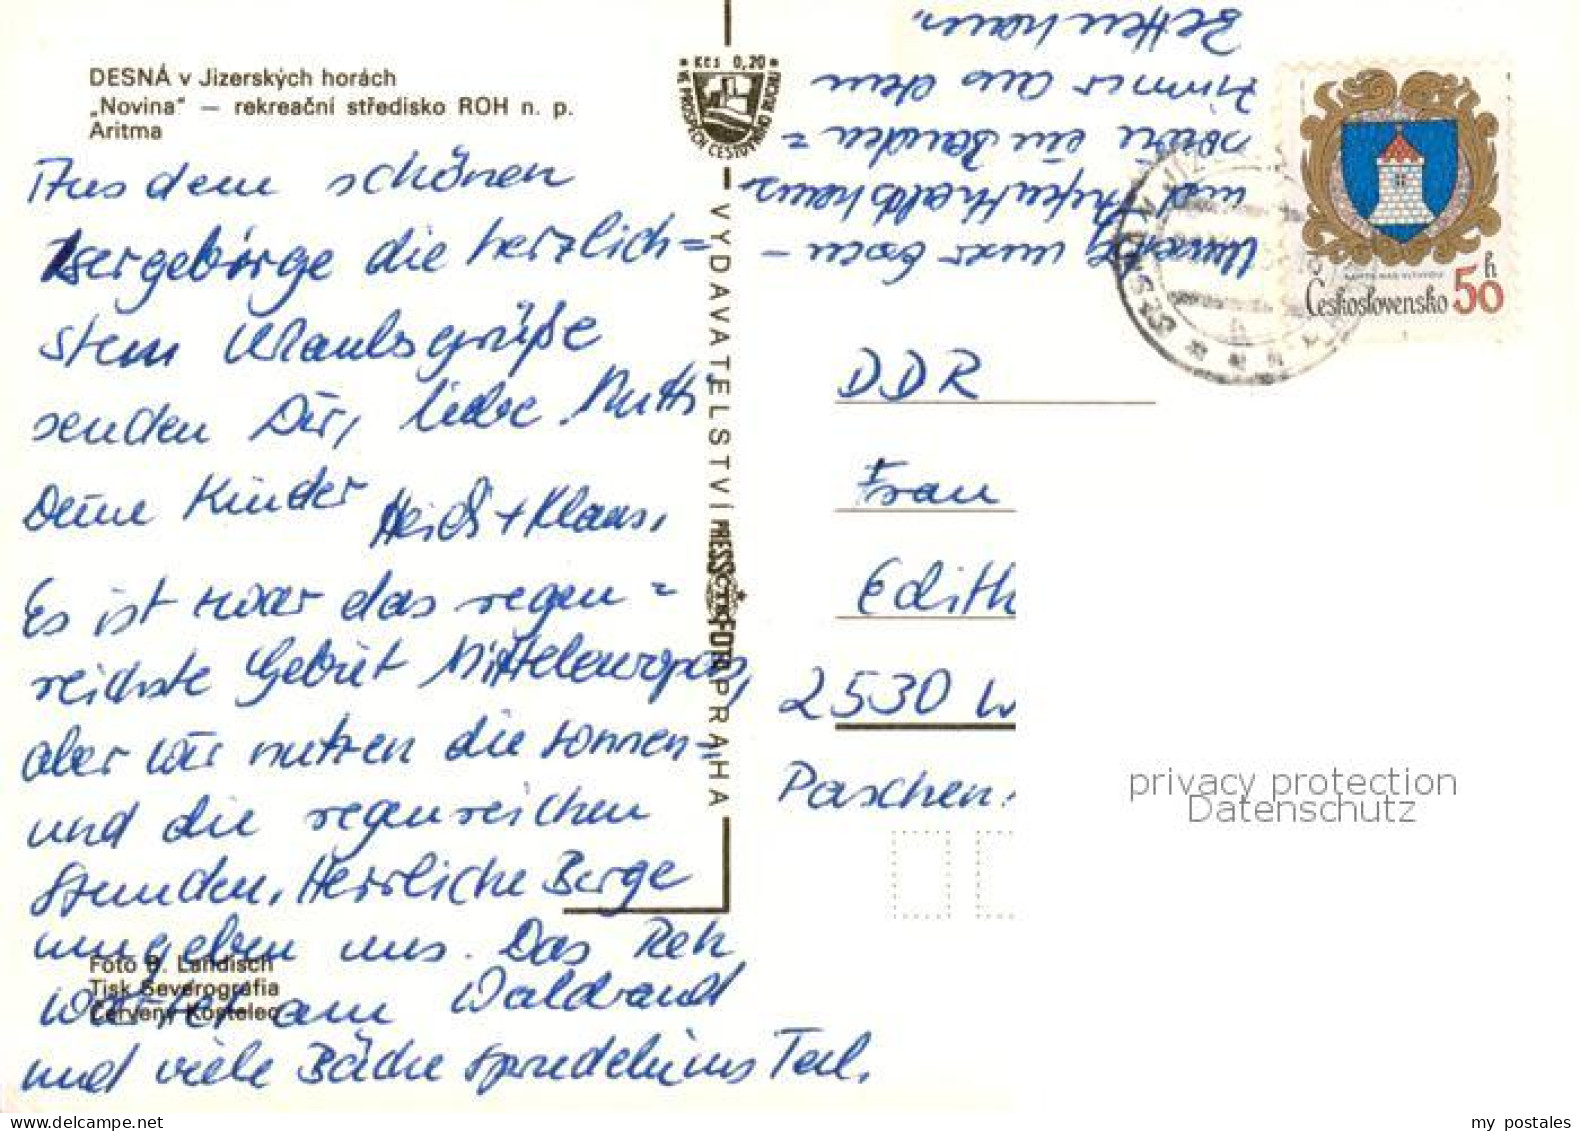 DESNÁ v Jizerských horách
„Novina" — rekreační středisko ROH n. p.
Aritma
Aus dem schönen
Isergebirge die herzlich=
sten Urlaubsgrüße
senden Dir, liebe Mutti
Deine Kinder Heidi + Klaus.
Es ist zwar das regen=
reichste Gebiet Mitteleuropas,
aber wir nutzen die sonnen=
und die regenreichen
Stunden. Herrliche Berge
umgeben uns. Das Reh
wartet am Waldrand
und viele Bäche sprudeln ins Tal.
Foto B. Landisch
Tisk Severografia
Červený Kostelec
Kčs 0,20
VE PROSPĚCH CESTOVNÍHO RUCHU
VYDAVATELSTVÍ PRESSFOTO PRAHA
ČTK
Umseitig unser Essen-
und Aufenthaltshaus
sowie ein Banden=
zimmer aus dem
Bettenhaus.
DESNÁ V JIZ
Československo 50 h
DDR
Frau
Edith
2530 W
Paschen
privacy protection
Datenschutz
my postales